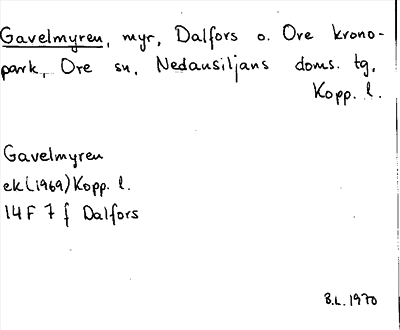 Gavelmyren, myr, Dalfors o. Ore krono-
park, Ore sn, Nedansiljans doms. tg,
Kopp. l.
Gavelmyren
ek(1969)Kopp. l.
14 F 7 f Dalfors
B.L. 1970